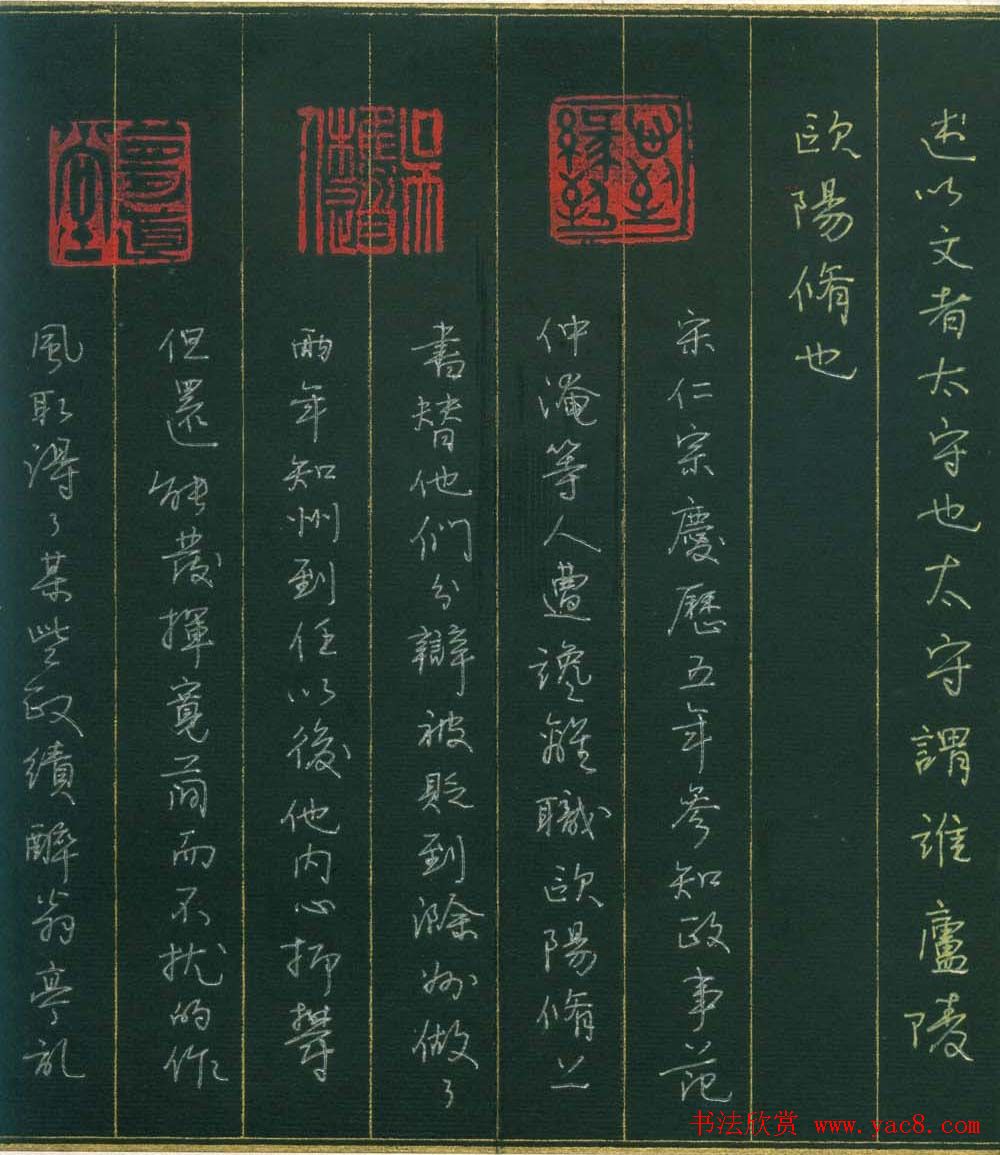 述以文者太守也太守謂誰廬陵
歐陽脩也
宋仁宗慶歷五年參知政事范
仲淹等人遭讒離職歐陽脩上
書替他們分辯被貶到滁州做了
兩年知州到任以後他内心抑鬱
但還能發揮寬簡而不扰的作
風取得了某些政績醉翁亭記
书法欣赏 www.yac8.com